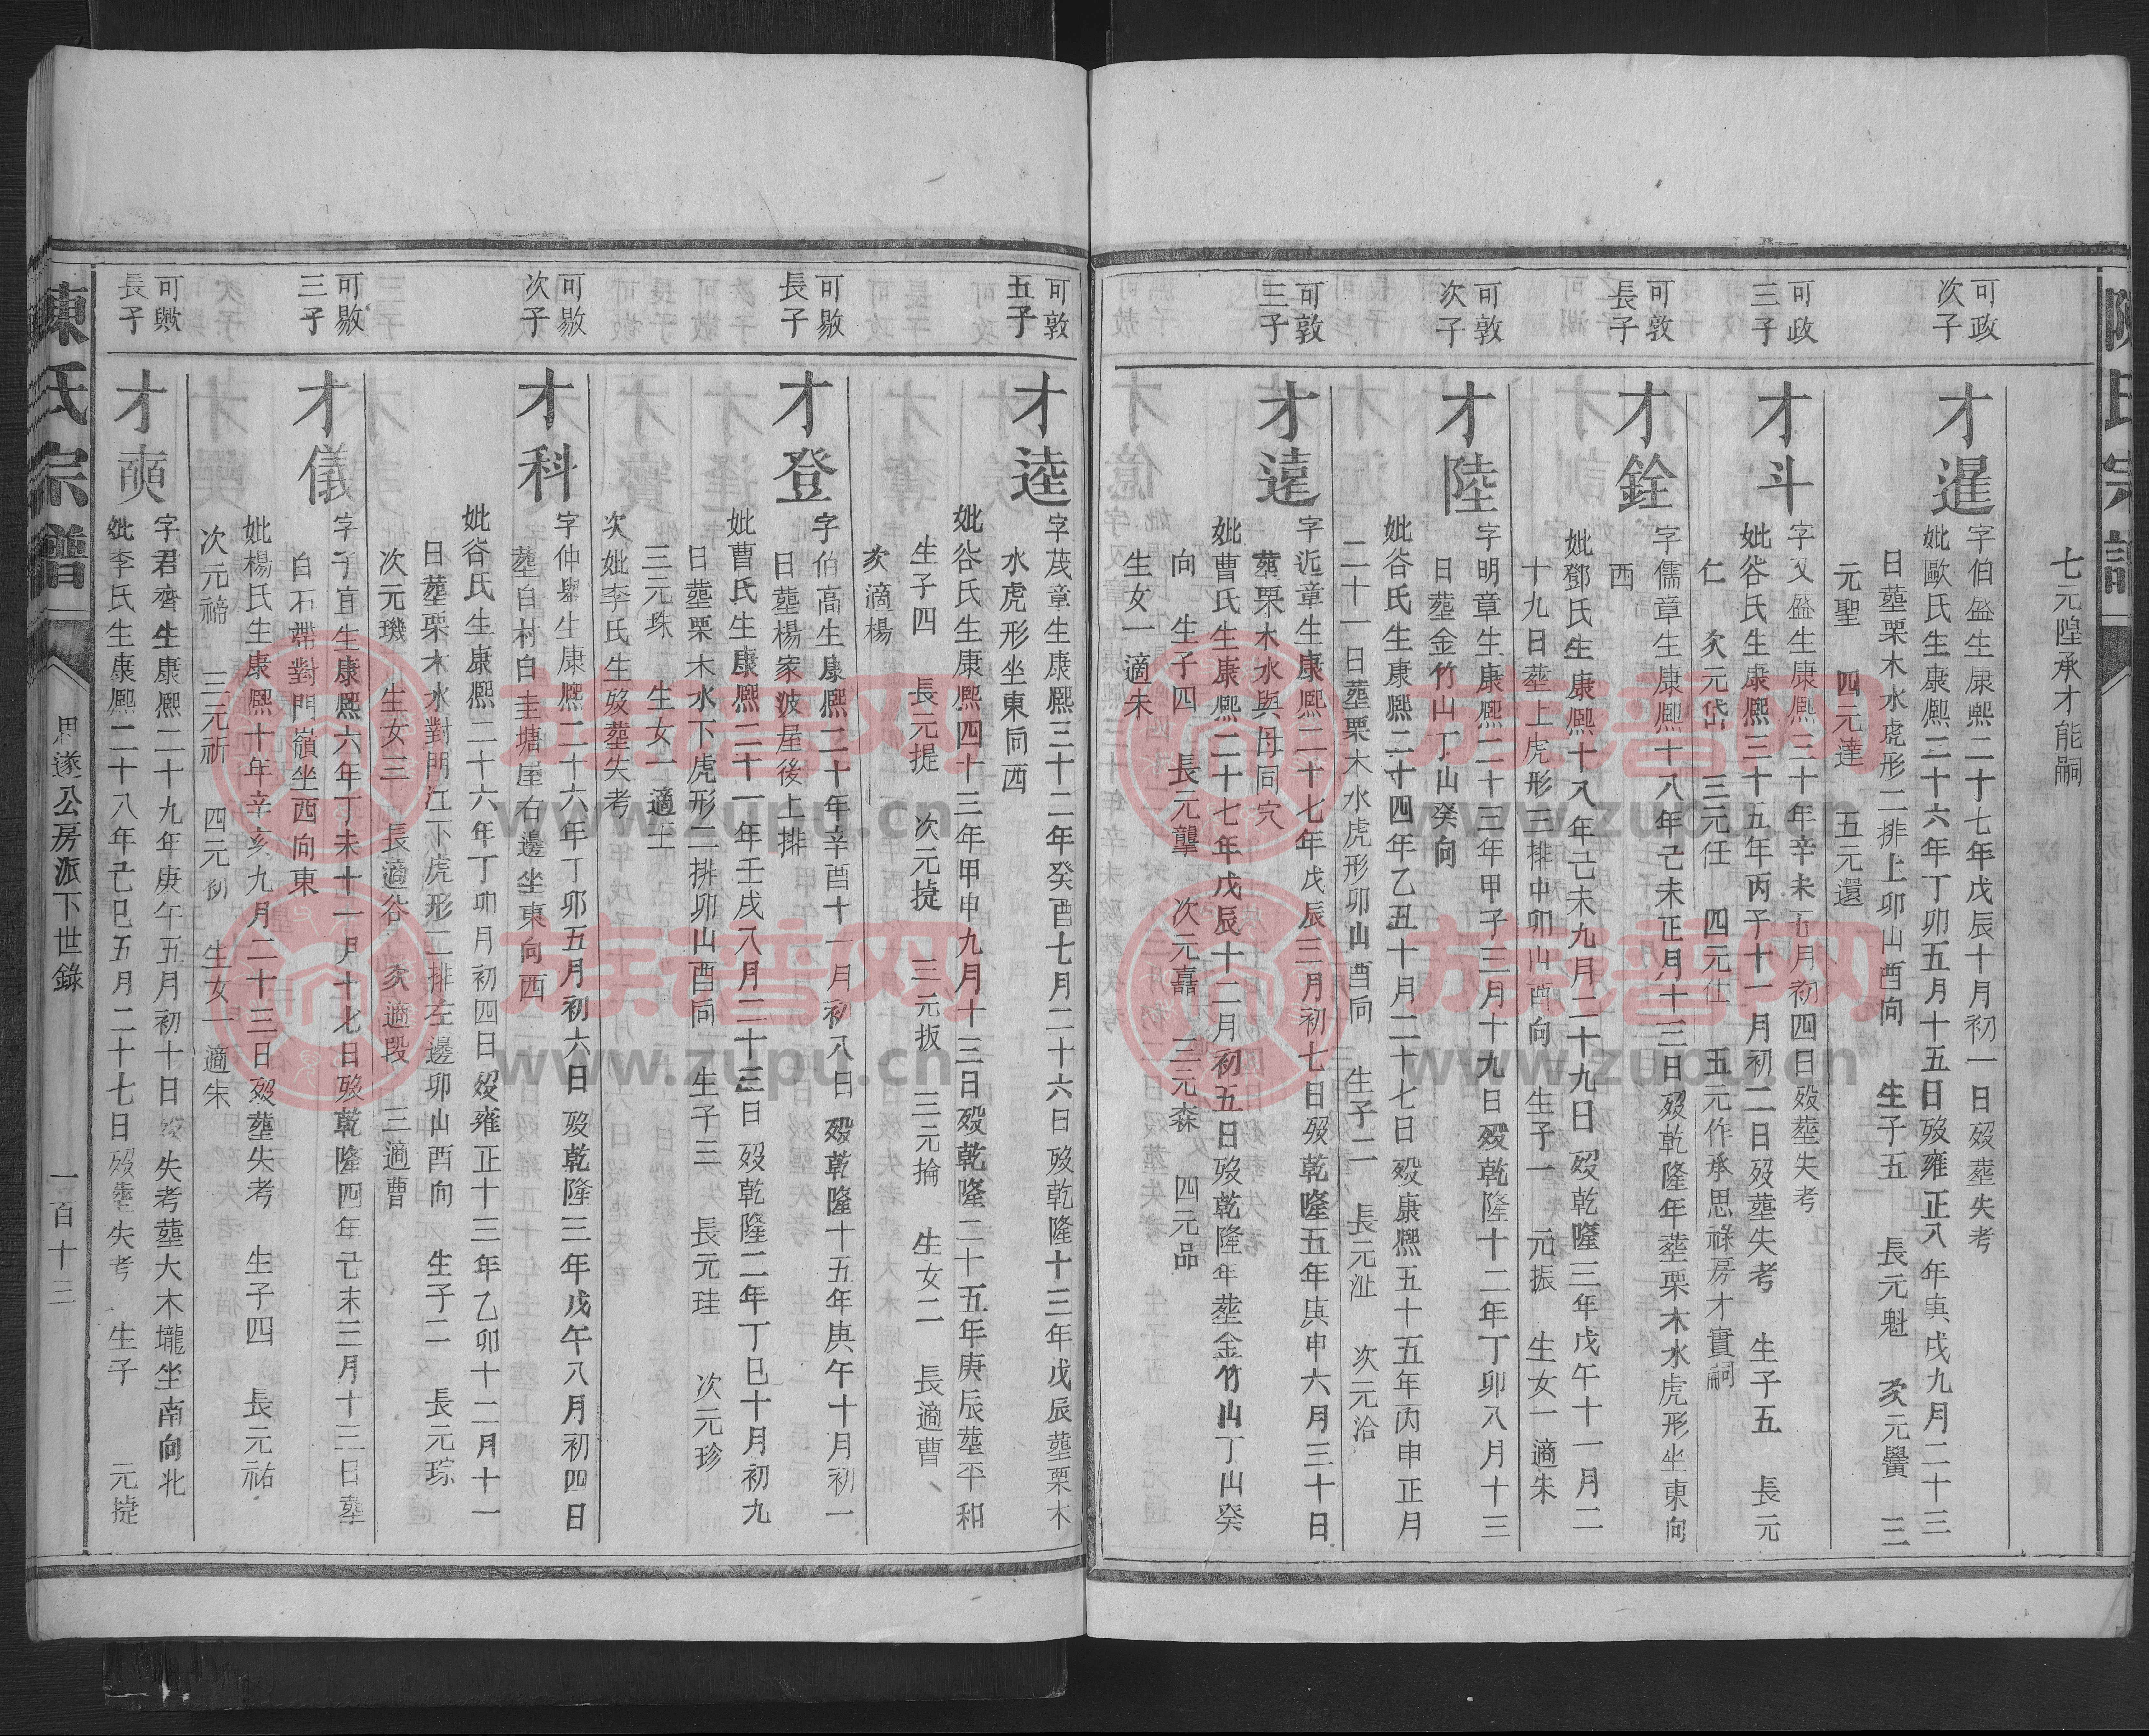 陳氏宗譜
七元隍承才能嗣
可政
次子
才暹
字伯盛生康熙二十七年戊辰十月初一日殁塟失考
妣歐氏生康熙二十六年丁卯五月十五日殁雍正八年庚戌九月二十三
日塟栗木水虎形二排上卯山酉向 生子五 長元魁 次元黌 三
元聖 四元達 五元還
可政
三子
才斗
字又盛生康熙三十年辛未五月初四日殁塟失考
妣谷氏生康熙三十五年丙子十一月初二日殁塟失考 生子五 長元
仁 次元岱 三元任 四元仕 五元作承思祿房才實嗣
可敦
長子
才銓
字儒章生康熙十八年己未正月十三日殁乾隆年塟栗木水虎形坐東向
西
妣鄧氏生康熙十八年己未九月二十九日殁乾隆三年戊午十一月二
十九日塟上虎形三排中卯山酉向 生子一 元振 生女一適朱
可敦
次子
才陸
字明章生康熙二十三年甲子三月十九日殁乾隆十二年丁卯八月十三
日塟金竹山丁山癸向
妣谷氏生康熙二十四年乙丑十月二十七日殁康熙五十五年丙申正月
二十一日塟栗木水虎形卯山酉向 生子二 長元沚 次元洽
可敦
三子
才遠
字沂章生康熙二十七年戊辰三月初七日殁乾隆五年庚申六月三十日
塟栗木水與母同穴
妣曹氏生康熙二十七年戊辰十二月初五日殁乾隆年塟金竹山丁山癸
向 生子四 長元鞏 次元嚞 三元森 四元品
生女一適朱
可敦
五子
才逵
字茂章生康熙三十二年癸酉七月二十六日殁乾隆十三年戊辰塟栗木
水虎形坐東向西
妣谷氏生康熙四十三年甲申九月十三日殁乾隆二十五年庚辰塟平和
生子四 長元提 次元㨗 三元扳 三元掄 生女二 長適曹
次適楊
可敭
長子
才登
字伯高生康熙二十年辛酉十一月初八日殁乾隆十五年庚午十月初一
日塟楊家波屋後上排
妣曹氏生康熙二十一年壬戌八月二十三日殁乾隆二年丁巳十月初九
日塟栗木水下虎形二排卯山酉向 生子三 長元珪 次元珍
三元珠 生女一適王
次妣李氏生殁塟失考
可敭
次子
才科
字仲舉生康熙二十六年丁卯五月初六日殁乾隆三年戊午八月初四日
塟白村白圭塘屋右邊坐東向西
妣谷氏生康熙二十六年丁卯月初四日殁雍正十三年乙卯十二月十一
日塟栗木水對門江下虎形二排左邊卯山酉向 生子二 長元琮
次元璣 生女三 長適谷 次適段 三適曹
可敭
三子
才儀
字子直生康熙六年丁未十一月十七日殁乾隆四年己未三月十三日塟
白石帶對門嶺坐西向東
妣楊氏生康熙十年辛亥九月二十三日殁塟失考 生子四 長元祐
次元禘 三元祈 四元例 生女一適朱
可歟
長子
才奭
字君齊生康熙二十九年庚午五月初十日殁失考塟大木壠坐南向北
妣李氏生康熙二十八年己巳五月二十七日殁塟失考 生子 元㨗
陳氏宗譜
思遂公房派下世錄
一百十三
族譜网
www.zupu.cn
族譜网
www.zupu.cn
族譜网
www.zupu.cn
族譜网
www.zupu.cn